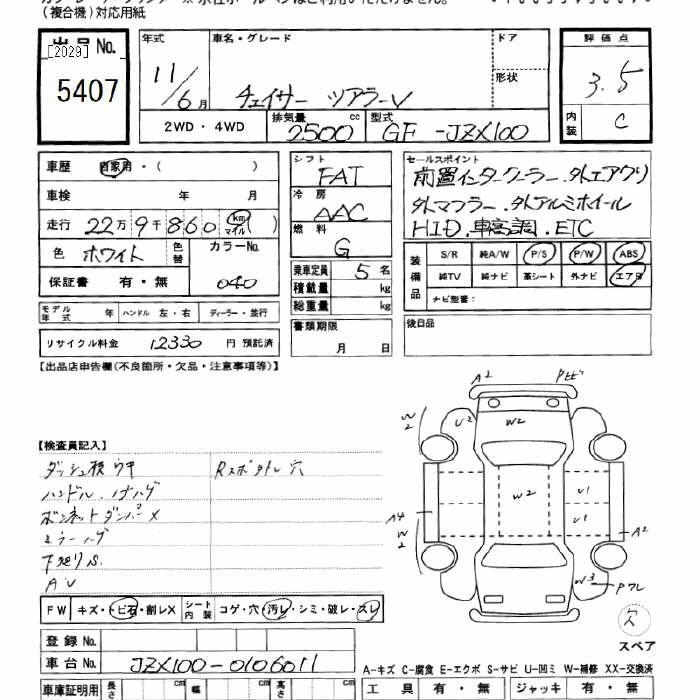 (複合機)対応用紙
出品No.
[2029]
5407
年式
11/6月
車名・グレード
チェイサー ツアラーV
ドア
形状
2WD・4WD
排気量 cc
2500
型式
GF -JZX100
評価点
3.5
内装
C
車歴 自家用・( )
車検 年 月
走行 22万9千860 km マイル ( )
色 ホワイト 色替
カラーNo.
040
保証書 有・無
モデル年式 年 ハンドル 左・右 ディーラー・並行
リサイクル料金 12330 円 預託済
シフト
FAT
冷房
AAC
燃料
G
乗車定員 5 名
積載量 kg
総重量 kg
書類期限
月 日
セールスポイント
前置インタークーラー.外エアクリ
外マフラー.外アルミホイール
HID.車高調.ETC
装備品
S/R 純A/W P/S P/W ABS
純TV 純ナビ 革シート 外ナビ エアB
ナビ型番:
後日品
【出品店申告欄(不良箇所・欠品・注意事項等)】
【検査員記入】
ダッシュ板ウキ
ハンドル.ハゲハゲ
ボンネットダンパー×
ミラーハゲ
下廻りS.
AV
A2
Pトビ
W2
U2
W2
W2
U1
U1
A4
W2
A2
W3
Pワレ
欠
スペア
FW キズ・トビ石・割レX
シート内装 コゲ・穴・汚レ・シミ・破レ・スレ
登録No.
車台No. JZX100-0106011
車庫証明用 長さ cm 幅 cm 高さ cm
A-キズ C-腐食 E-エクボ S-サビ U-凹ミ W-補修 XX-交換済
工具 有・無 ジャッキ 有・無